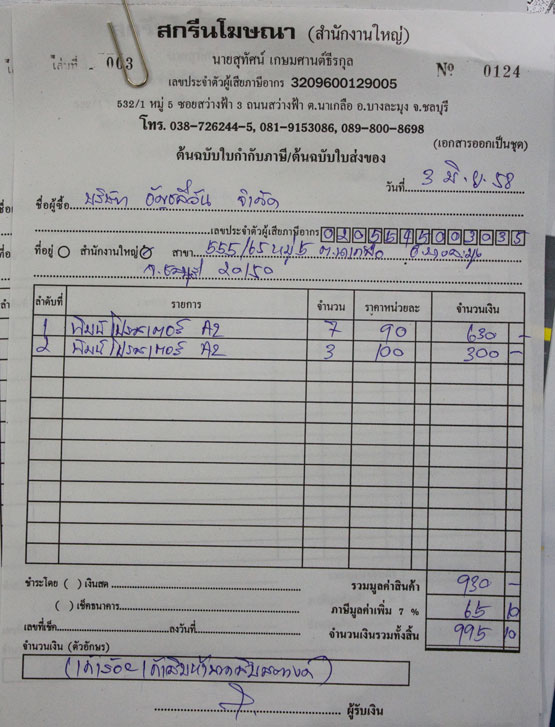 สกรีนโฆษณา (สำนักงานใหญ่)
เล่มที่ 003
นายสุทัศน์ เกษมศานต์ธีรกุล
Nº 0124
เลขประจำตัวผู้เสียภาษีอากร 3209600129005
532/1 หมู่ 5 ซอยสว่างฟ้า 3 ถนนสว่างฟ้า ต.นาเกลือ อ.บางละมุง จ.ชลบุรี
โทร. 038-726244-5, 081-9153086, 089-800-8698
(เอกสารออกเป็นชุด)
ต้นฉบับใบกำกับภาษี/ต้นฉบับใบส่งของ
วันที่ 3 มิ.ย. 58
ชื่อผู้ซื้อ บริษัท จำกัด
เลขประจำตัวผู้เสียภาษีอากร 0205545003035
ที่อยู่ สำนักงานใหญ่ สาขา 555/65 หมู่ 5 ต.นาเกลือ อ.บางละมุง
จ.ชลบุรี 20150
ลำดับที่ รายการ จำนวน ราคาหน่วยละ จำนวนเงิน
1 พิมพ์โปสเตอร์ A2 7 90 630 -
2 พิมพ์โปสเตอร์ A2 3 100 300 -
ชำระโดย ( ) เงินสด รวมมูลค่าสินค้า 930 -
( ) เช็คธนาคาร ภาษีมูลค่าเพิ่ม 7 % 65 10
เลขที่เช็ค ลงวันที่ จำนวนเงินรวมทั้งสิ้น 995 10
จำนวนเงิน (ตัวอักษร)
(เก้าร้อยเก้าสิบห้าบาทสิบสตางค์)
ผู้รับเงิน